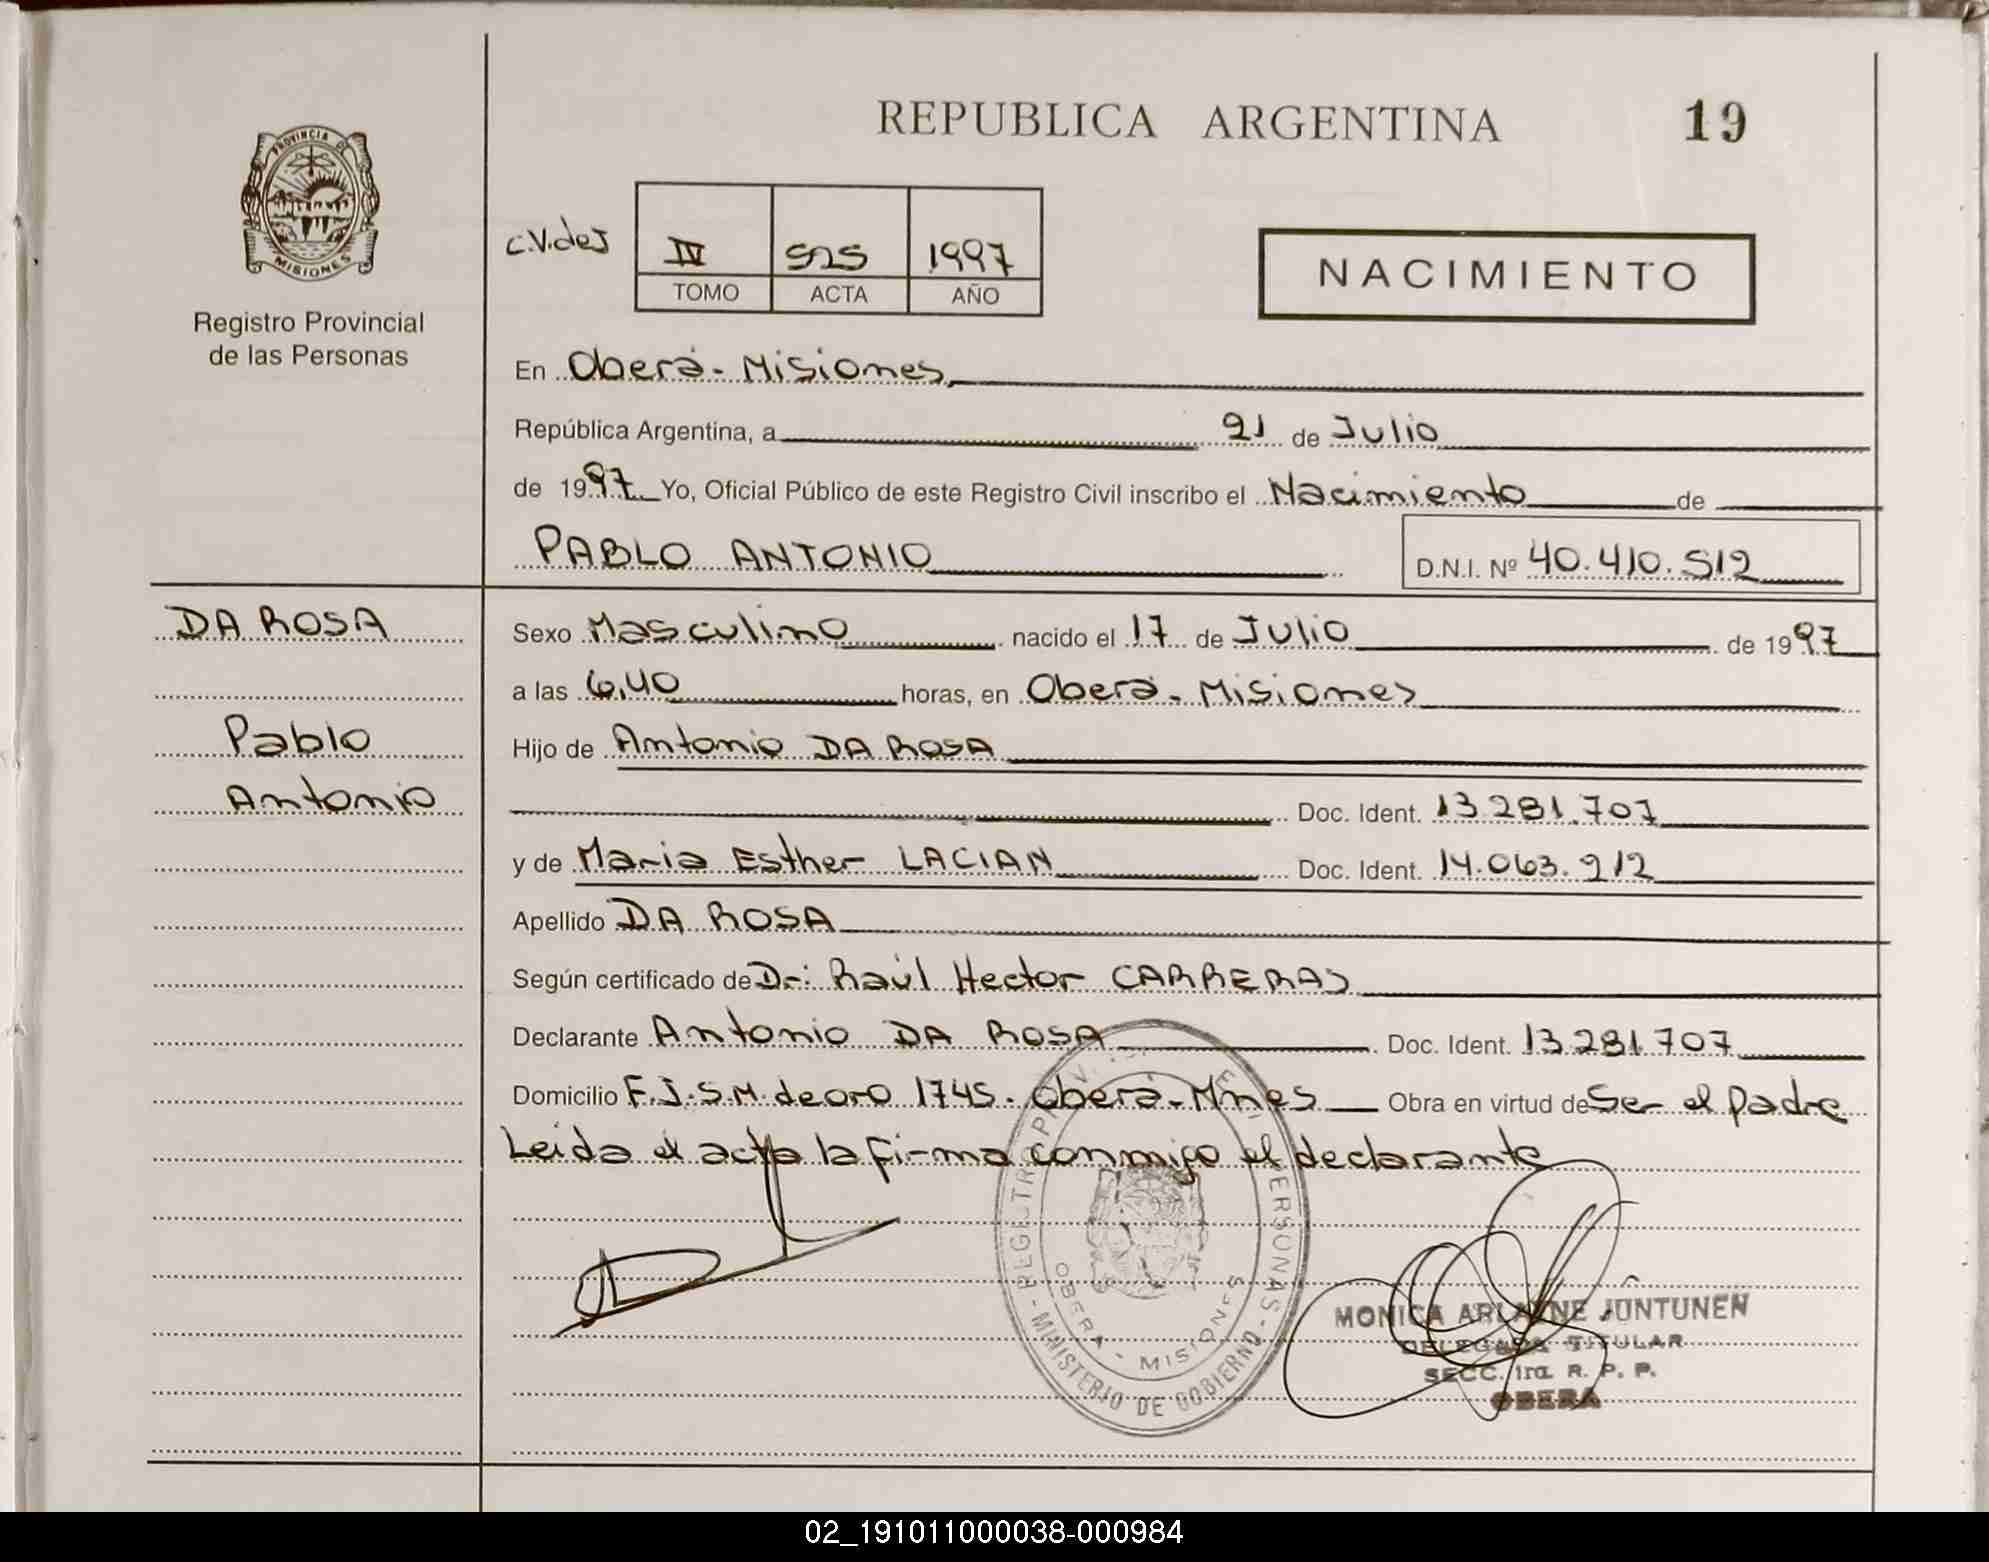 REPUBLICA ARGENTINA
19
PROVINCIA DE
MISIONES
Registro Provincial
de las Personas
C.V.deJ
IV 525 1997
TOMO ACTA AÑO
NACIMIENTO
En Oberá - Misiones
República Argentina, a 21 de Julio
de 1997 Yo, Oficial Público de este Registro Civil inscribo el Nacimiento de
PABLO ANTONIO
D.N.I. Nº 40.410.512
DA ROSA
Pablo
Antonio
Sexo Masculino nacido el 17 de Julio de 1997
a las 6,40 horas, en Oberá - Misiones
Hijo de Antonio DA ROSA
Doc. Ident. 13.281.707
y de Maria Esther LACIAN Doc. Ident. 14.063.912
Apellido DA ROSA
Según certificado de Dr: Raúl Hector CARRERAS
Declarante Antonio DA ROSA Doc. Ident. 13.281.707
Domicilio F.J.S.M. de oro 1745 - Oberá - Mnes Obra en virtud de Ser el padre
Leida el acta la firma conmigo el declarante
PERSONAS - MINISTERIO DE GOBIERNO -
OBERA - MISIONES
MONICA JUNTUNEN
DELEGADA TITULAR
SECC. 1ra. R. P. P.
OBERA
02_191011000038-000984